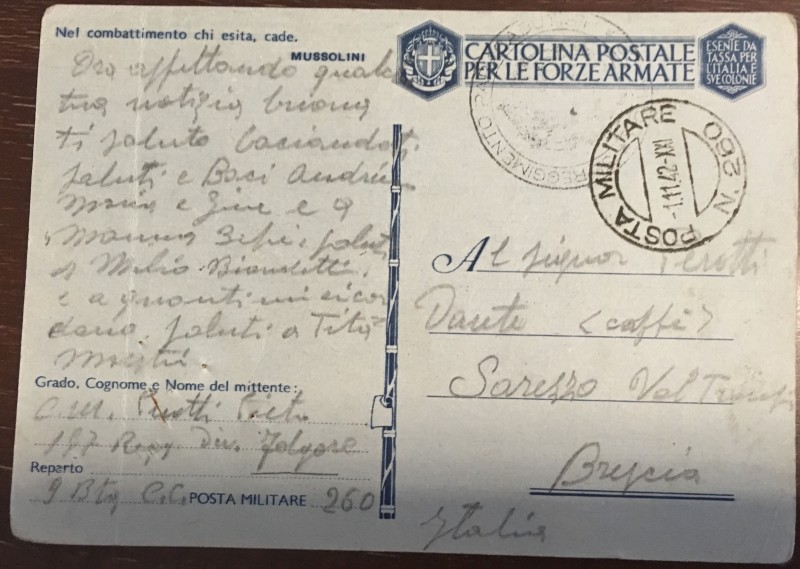 Nel combattimento chi esita, cade.
MUSSOLINI
Ora aspettando qualche
tua notizia buona
ti saluto baciandoti
saluti e Baci
Maria e Gine e a
mamma Bepi e saluti
a Melio
e a quanti mi ricor
dano. saluti a Tita
Grado, Cognome e Nome del mittente:
C.M. Perotti
187 Regg Div. Folgore
Reparto
9 Btg C.C. POSTA MILITARE 260
CARTOLINA POSTALE
PER LE FORZE ARMATE
ESENTE DA
TASSA PER
L'ITALIA E
SVE COLONIE
REGGIMENTO
POSTA MILITARE N. 260
-1.11.42-XXI
Al signor Perotti
Dante (caffè)
Sarezzo Val Trompia
Brescia
Italia